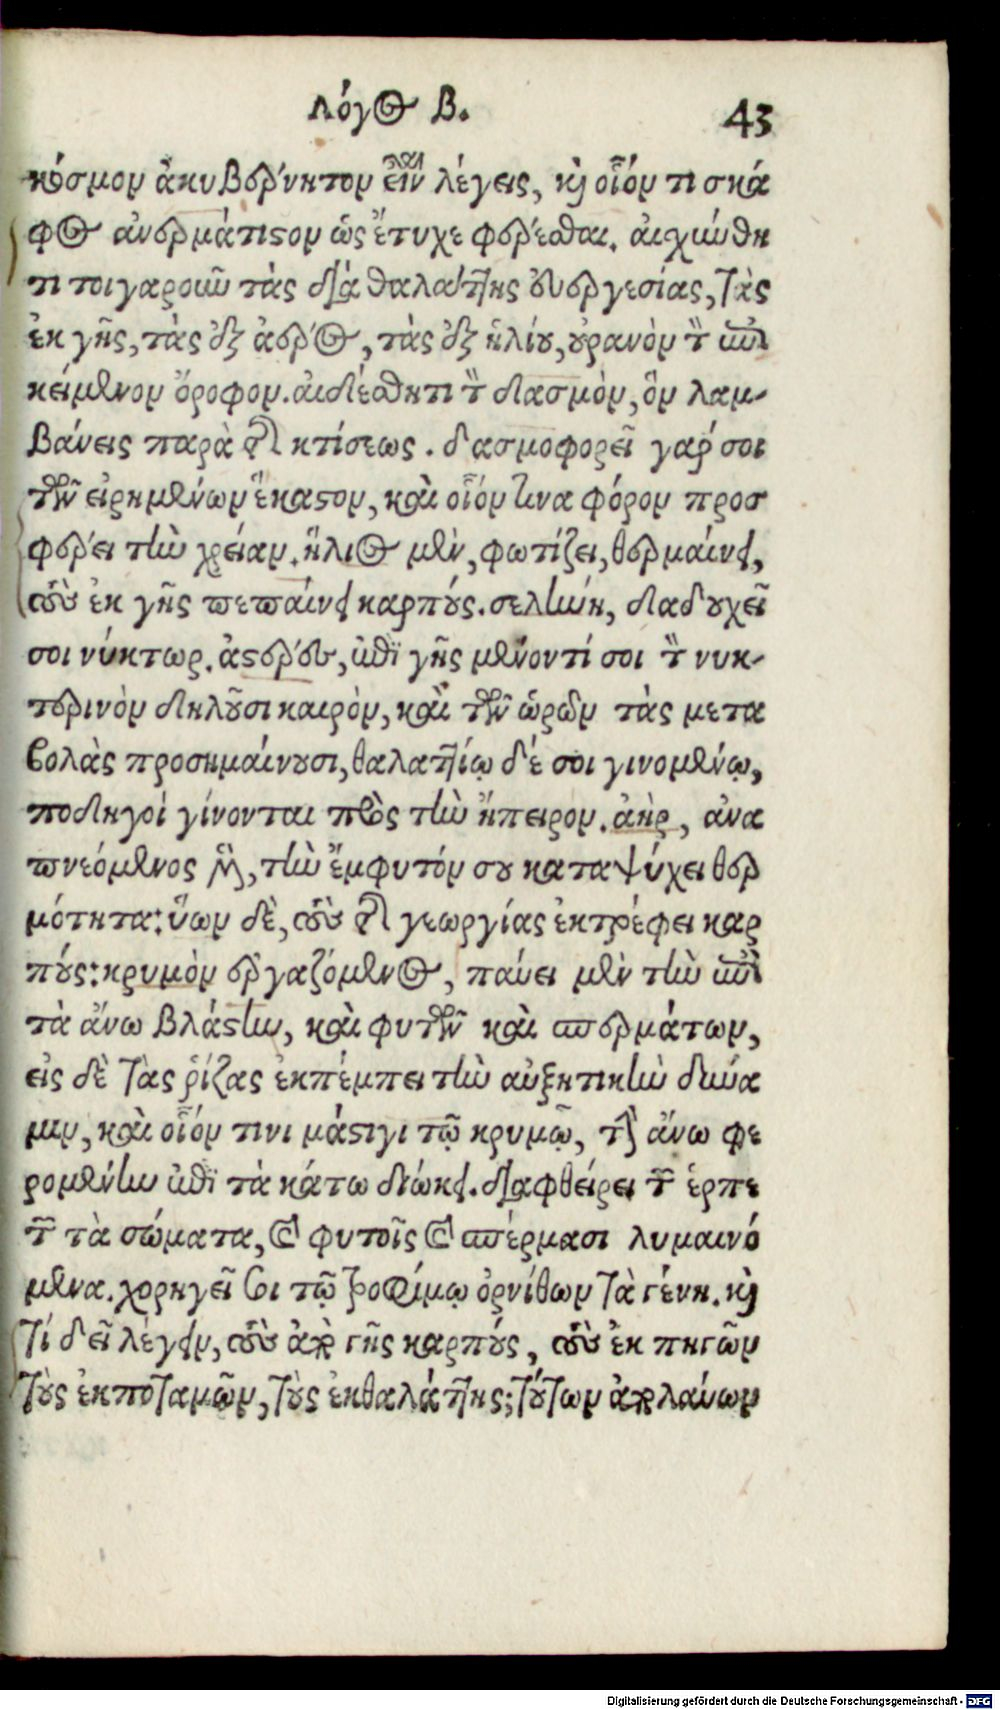 Λόγος Β. 43
κόσμον ἀκυβέρνητον εἶναι λέγεις, καὶ οἷόν τι σκά
φος ἀνερμάτιστον ὡς ἔτυχε φέρεσθαι. αἰσχύνθη
τι τοιγαροῦν τὰς διὰ θαλάττης εὐεργεσίας, τὰς
ἐκ γῆς, τὰς ἐξ ἀέρος, τὰς ἐξ ἡλίου, οὐρανὸν τὸν ὑπερ
κείμενον ὄροφον. αἰδέσθητι τὸν δασμὸν, ὃν λαμ-
βάνεις παρὰ τῆς κτίσεως. δασμοφορεῖ γάρ σοι
τῶν εἰρημένων ἕκαστον, καὶ οἷόν τινα φόρον προσ
φέρει τὴν χρείαν. ἥλιος μὲν, φωτίζει, θερμαίνει,
τοὺς ἐκ γῆς πεπαίνει καρπούς. σελήνη, δᾳδουχεῖ
σοι νύκτωρ. ἀστέρες, ἐπὶ γῆς μένοντί σοι τὸν νυκ-
τερινὸν δηλοῦσι καιρὸν, καὶ τῶν ὡρῶν τὰς μετα
βολὰς προσημαίνουσι, θαλαττίῳ δέ σοι γινομένῳ,
ποδηγοὶ γίνονται πρὸς τὴν ἤπειρον. ἀὴρ, ἀνα
πνεόμενος μὲν, τὴν ἔμφυτόν σου καταψύχει θερ
μότητα: ὕων δὲ, τοὺς τῆς γεωργίας ἐκτρέφει καρ
πούς: κρυμὸν ἐργαζόμενος, παύει μὲν τὴν ἐπὶ
τὰ ἄνω βλάστην, καὶ φυτῶν καὶ σπερμάτων,
εἰς δὲ τὰς ῥίζας ἐκπέμπει τὴν αὐξητικὴν δύνα
μιν, καὶ οἷόν τινι μάστιγι τῷ κρυμῷ, τὴν ἄνω φε
ρομένην ἐπὶ τὰ κάτω διώκει. διαφθείρει τῶν ἑρπε
τῶν τὰ σώματα, καὶ φυτοῖς καὶ σπέρμασι λυμαινό
μενα. χορηγεῖ σοι τῷ τροφίμῳ ὀρνίθων τὰ γένη. καὶ
τί δεῖ λέγειν, τοὺς ἀπὸ γῆς καρποὺς, τοὺς ἐκ πηγῶν
τοὺς ἐκ ποταμῶν, τοὺς ἐκ θαλάττης; τούτων ἀπολαύων
Digitalisierung gefördert durch die Deutsche Forschungsgemeinschaft - DFG